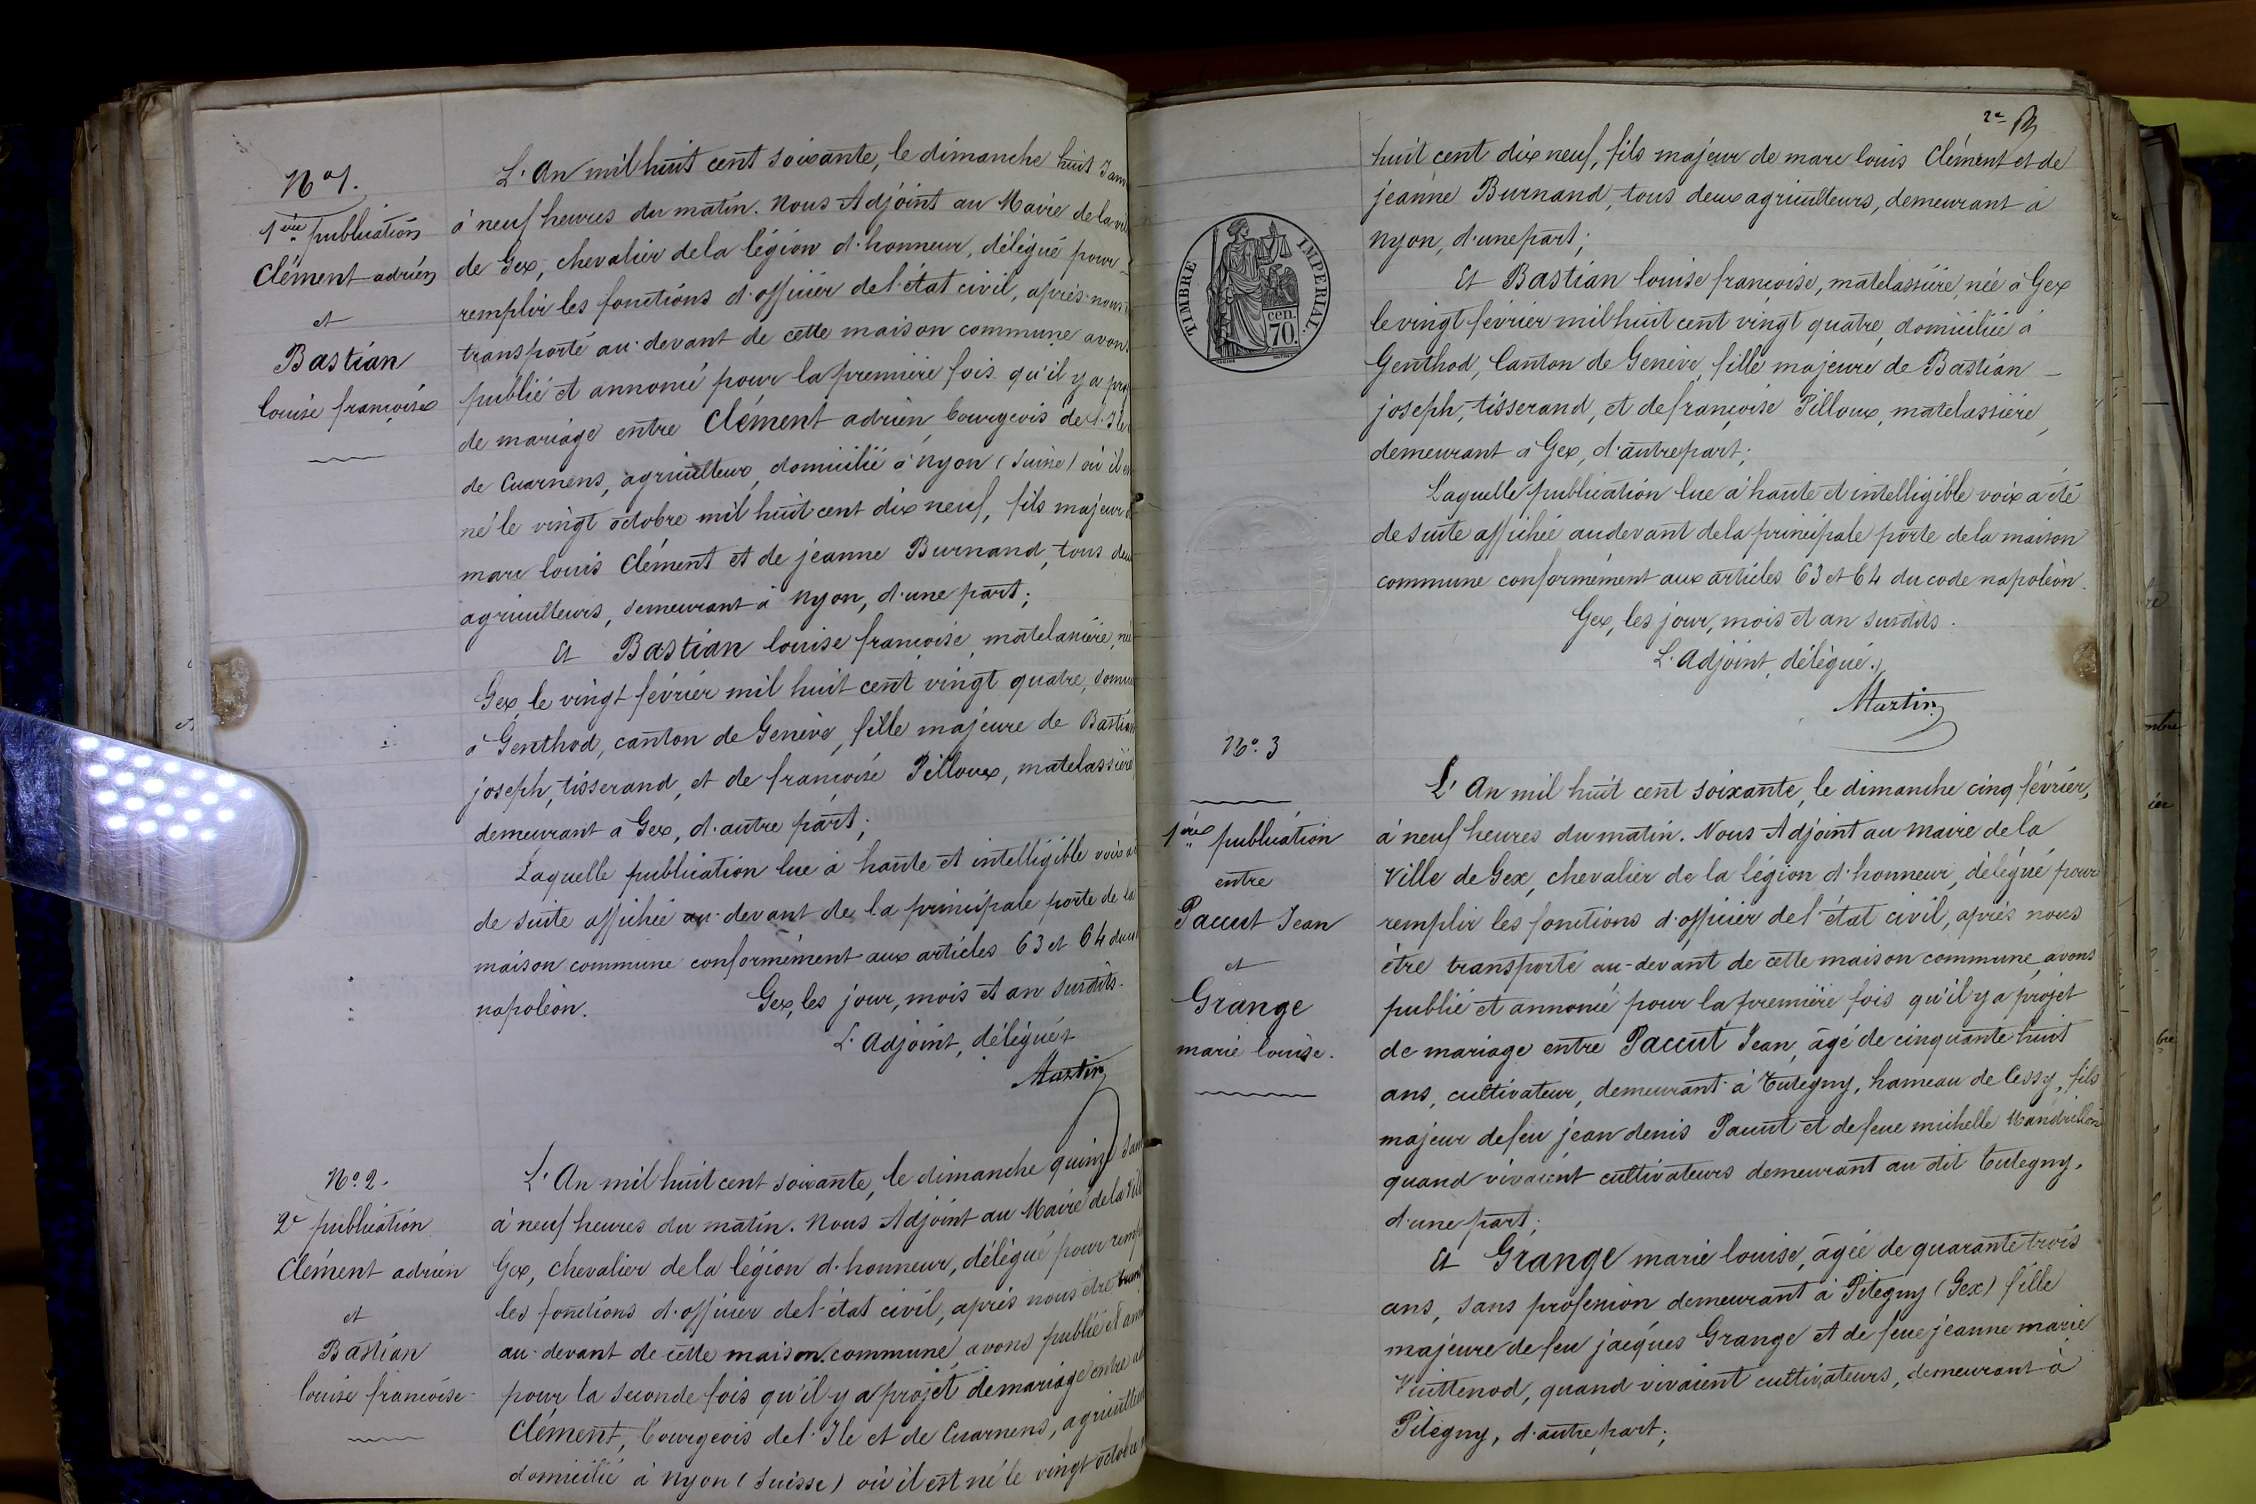 N° 1.
1ère publication
Clément adrien
et
Bastian
louise françoise
L'An mil huit cent soixante, le dimanche huit Jan
à neuf heures du matin. Nous Adjoint au Maire de la vil
de Gex, chevalier de la légion d'honneur, délégué pour
remplir les fonctions d'officier de l'état civil, après nous
transporté au-devant de cette maison commune avon
publié et annoncé pour la première fois qu'il y a pro
de mariage entre Clément adrien, bourgeois de l'Ile
de Cuarnens, agriculteur, domicilié à Nyon (Suisse) où il es
né le vingt octobre mil huit cent dix neuf, fils majeur d
marc louis Clément et de jeanne Burnand, tous deu
agriculteurs, demeurant à Nyon, d'une part;
Et Bastian louise françoise, matelassière, né
Gex, le vingt février mil huit cent vingt quatre, domici
à Genthod, canton de Genève, fille majeure de Bastian
joseph, tisserand, et de françoise Pilloux, matelassière
demeurant à Gex, d'autre part;
Laquelle publication lue à haute et intelligible voix a
de suite affichée au-devant de la principale porte de la
maison commune conformément aux articles 63 et 64 du co
napoléon.
Gex, les jour, mois et an susdits.
L'Adjoint, délégué
Martin
N° 2.
2e publication
Clément adrien
et
Bastian
louise francoise
L'An mil huit cent soixante, le dimanche quinze Jan
à neuf heures du matin. Nous Adjoint au Maire de la vill
Gex, chevalier de la légion d'honneur, délégué pour remp
les fonctions d'officier de l'état civil, après nous être tran
au-devant de cette maison commune, avons publié et ann
pour la seconde fois qu'il y a projet de mariage entre ad
Clément, bourgeois de l'Ile et de Cuarnens, agriculteu
domicilié à Nyon (Suisse) où il est né le vingt octobre
2e
huit cent dix neuf, fils majeur de marc louis Clément et de
jeanne Burnand, tous deux agriculteurs, demeurant à
Nyon, d'une part;
Et Bastian louise françoise, matelassière, née à Gex
le vingt février mil huit cent vingt quatre, domiciliée à
Genthod, Canton de Genève, fille majeure de Bastian
joseph, tisserand, et de françoise Pilloux, matelassière,
demeurant à Gex, d'autre part;
Laquelle publication lue à haute et intelligible voix a été
de suite affichée au devant de la principale porte de la maison
commune conformément aux articles 63 et 64 du code napoléon.
Gex, les jour, mois et an susdits.
L'Adjoint, délégué.
Martin
TIMBRE IMPERIAL.
cen.
70.
N° 3
1ère publication
entre
Paccut Jean
et
Grange
marie louise.
L'An mil huit cent soixante, le dimanche cinq février,
à neuf heures du matin. Nous Adjoint au maire de la
Ville de Gex, chevalier de la légion d'honneur, délégué pour
remplir les fonctions d'officier de l'état civil, après nous
être transporté au-devant de cette maison commune, avons
publié et annoncé pour la première fois qu'il y a projet
de mariage entre Paccut Jean, âgé de cinquante huit
ans, cultivateur, demeurant à Tutegny, hameau de Cessy, fils
majeur de feu jean denis Paccut et de feue michelle Mandrillon
quand vivaient cultivateurs demeurant au dit Tutegny,
d'une part;
Et Grange marie louise, âgée de quarante trois
ans, sans profession demeurant à Pitegny (Gex) fille
majeure de feu jacques Grange et de feue jeanne marie
Vuittenod, quand vivaient cultivateurs, demeurant à
Pitegny, d'autre part;